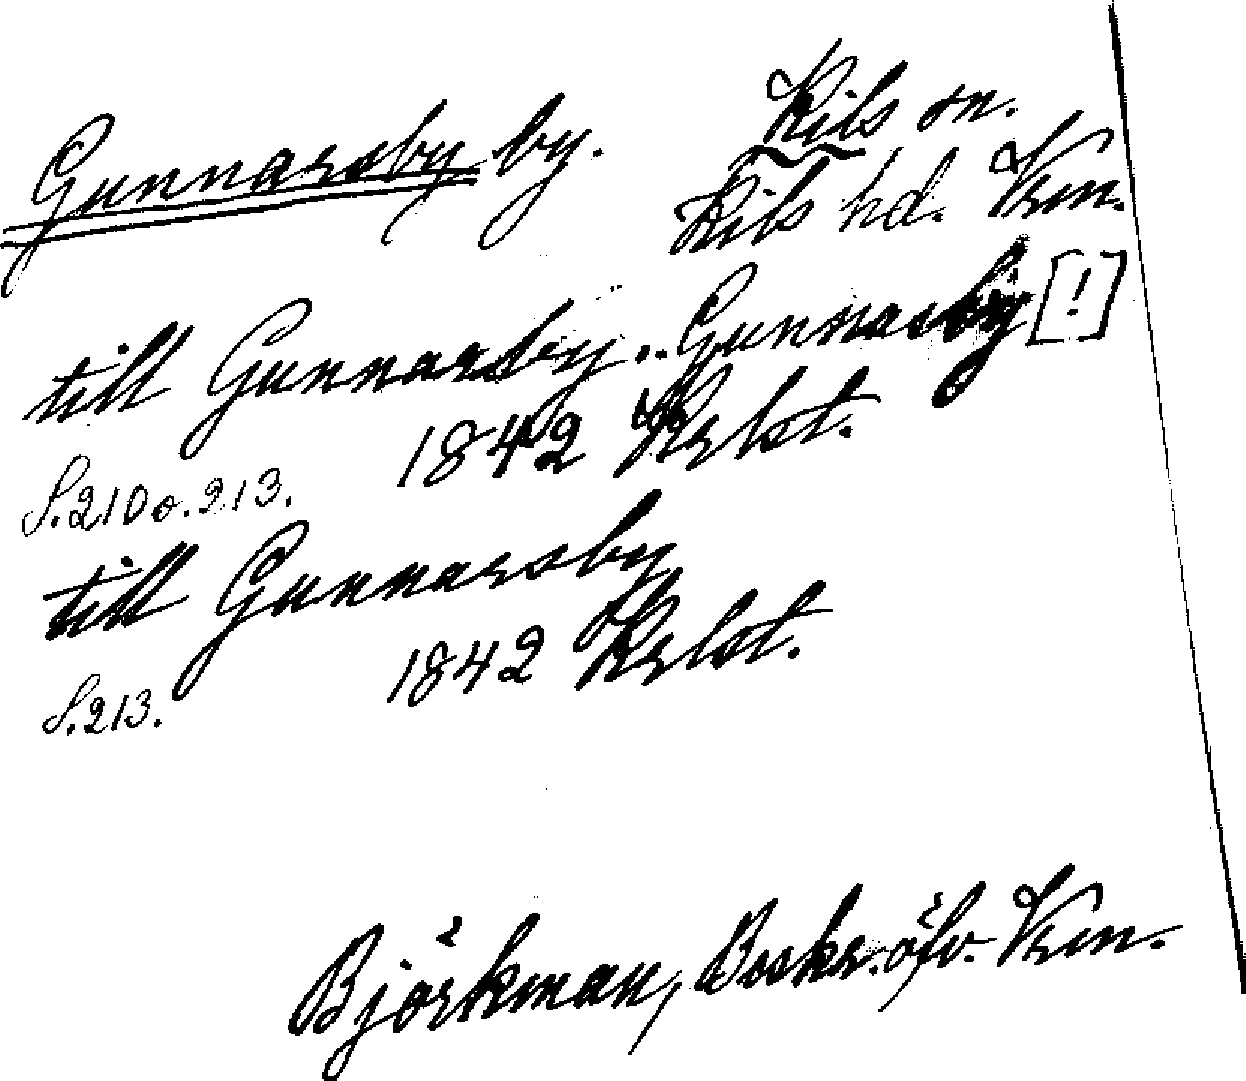 Gunnarsby by. Kils sn.
Kils hd. Vrm.
till Gunnarsby.. Gunnarsby [!]
1842 Krlst.
S. 210 o. 213.
till Gunnarsby
1842 Krlst.
S. 213.
Björkman, Beskr. öfv. Vrm.